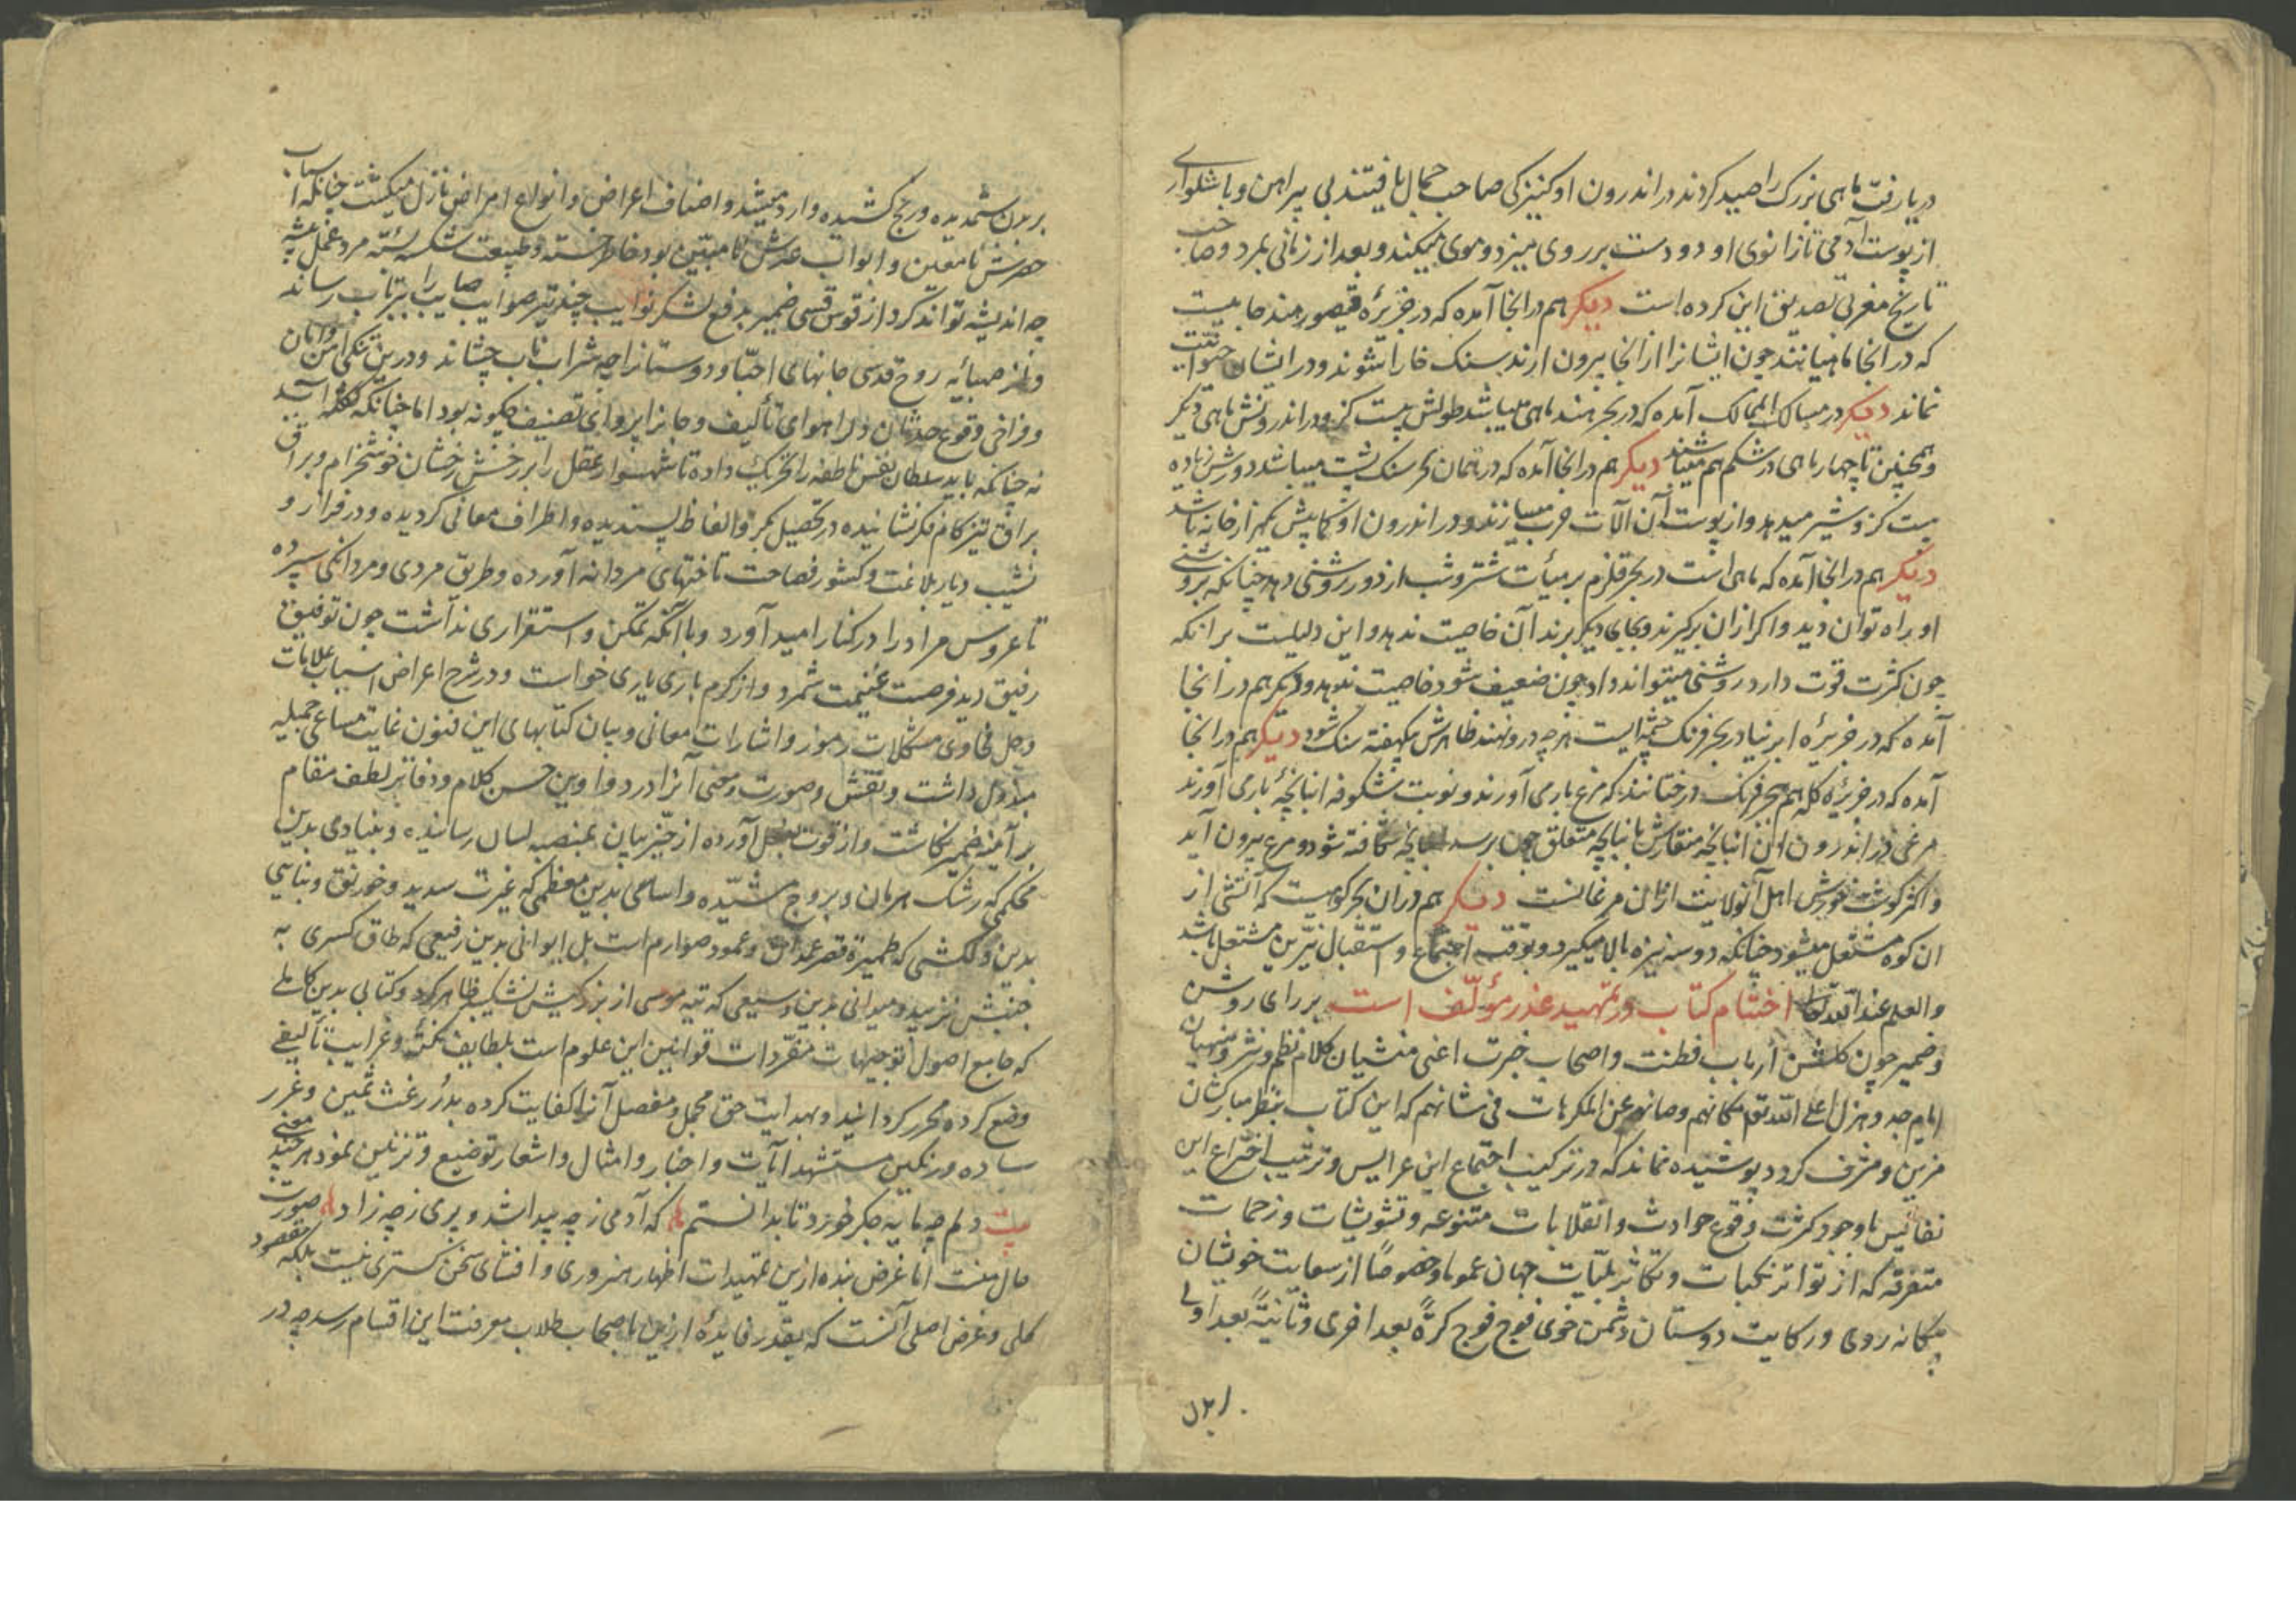 دریا رفت ماهی بزرک را صید کردند در اندرون او کنیزکی صاحب جمال یافتند بی پیراهن و با شلواری
از پوست آدمی تا زانوی او و دو دست بر روی میزد و موی میکند و بعد از زمانی بمرد و صاحب
تاریخ مغرب تصدیق این کرده است دیکر هم در انجا آمده که در جزیرهٔ قیصور هند جائیست
که در انجا ماهیانند چون ایشانرا از انجا بیرون ارند سنک خارا شوند و در ایشان حیوانیت
نماند دیکر در مسالک الممالک آمده که در بحر هند ماهی میباشد طولش بیست کز و در اندرونش ماهی دیکر
و همچنین تا چهار ماهی در شکم هم میباشند دیکر هم در انجا آمده که در همان بحر سنک پشت میباشد دورش زیاده
بیست کز و شیر میدهد و از پوست آن آلات حرب میسازند و در اندرون او کمابیش هزار خانه باشد
دیکر هم در انجا آمده که ماهی است در بحر قلزم بر هیأت شتر و شب از دور روشنی دهد چنانکه بروشنی
او براه توان دید و اکر ازان برکیرند و بجای دیکر برند آن خاصیت ندهد و این دلیلست بر انکه
چون کثرت قوت دارد روشنی میتواند داد چون ضعیف شود خاصیت ندهد و دیکر هم در انجا
آمده که در جزیره ابرنیا در بحر فرنک چشمه ایست هرچه درو نهند ظاهرش یکهفته سنک شود دیکر هم در انجا
آمده که در جزیرهٔ کله هم ببحر فرنک درختانند که مرغ بار می آورند و نوبت شکوفه انبانچهٔ بار می آورند
مرغی در اندرون آن انبانچه منقارش بانبانچه متعلق چون برسد انبانچه شکافته شود و مرغ بیرون آید
و اکثر کوشت خورش اهل آنولایت ازان مرغانست دیکر هم در ان بحر کوهیست که آتشی از
ان کوه مشتعل میشود چنانکه دو سه نیزه بالا میکیرد و بوقت اجتماع و استقبال نیرین مشتعل باشد
والعلم عند الله تعالی اختتام کتاب در تمهید عذر مؤلف است بر رای روشن
و ضمیر چون کلشن ارباب فطنت و اصحاب خبرت اعنی منشیان کلام نظم و نثر و منهیان
ایام جد و هزل اعلی الله تعالی مکانهم و صانهم عن المکرهات فی شانهم که این کتاب بنظر مبارکشان
مزین و مشرف کردد پوشیده نماند که در ترکیب اجتماع این عرایس و ترتیب اختراع این
نفائس با وجود کثرت وقوع حوادث و انقلابات متنوعه و تشویشات و زحمات
متفرقه که از تواتر نکبات و تکاثر بلیات جهان عموما و خصوصا از سعایت خویشان
بیکانه روی و رکایت دوستان دشمن خوی فوج فوج کرةً بعد اخری و ثانیةً بعد اولی
بر بدن ستمدیده و رنج کشیده وارد میشد و اصناف اعراض و انواع امراض نازل میکشت چنانکه اسباب
حصرش نامعین و ابواب عدش نامبین بود خاطر خسته و طبیعت شکسته بسته مرد عمل پیشه
چه اندیشه تواند کرد از قوس قسی ضمیر بدفع لشکر نوایب چند تیر صوایب صایب را بپرتاب رساند
و از صبائیه روح قدسی جانهای احبا و دوستانرا چه شراب ناب چشاند و درین تنکی امن و امان
و فراخی وقوع حدثان دلرا هوای تألیف و جانرا پروای تصنیف چکونه بود اما چنانکه کفته آید
نه چنانکه باید سلطان نفس ناطقه را تحریک داده تا شهسوار عقل را بر رخش رخشان خوشخرام و براق
براق تیزکام فکر نشانیده در تحصیل بکر و الفاظ پسندیده و اطراف معانی کردیده و در فراز و
نشیب دیار بلاغت و کشور فصاحت تاختهای مردانه آورده و طریق مردی و مردانکی سپرده
تا عروس مراد را در کنار امید آورد و با آنکه تمکن و استقراری نداشت چون توفیق
رفیق دید فرصت غنیمت شمرد و از کرم باری یاری خواست و در شرح اعراض اسباب علامات
و حل فحاوی مشکلات رموز و اشارات معانی و بیان کتابهای این فنون غایت مساعی جمیله
مبذول داشت و نقش و صورت و معنی آنرا در دواوین حسن کلام و دفاتر لطف مقام
بر آینه ضمیر نکاشت و از قوت بفعل آورده از حیز بیان بمنصه لسان رسانیده و بنیادی بدین
محکمی که رشک هرمان و بروج مشیده و اساسی بدین معظمی که غیرت سدید و خورنق و بنایی
بدین دلکشی که ظهیرة قصر غمدان و عمود صوارم است بل ایوانی بدین رفیعی که طاق کسری به
جنبش نرسید و میدانی بدین وسیعی که تیه موسی از بزرکیش نشکیبد ظاهر کرد و کتابی بدین کاملی
که جامع اصول توجیهات منفردات قوانین این علوم است بلطایف نکت و غرایب تألیفی
وضع کرده محرر کردانید و بهدایت حق مجمل و مفصل آنرا کفایت کرده بدرر غث ثمین و غرر
ساده و رنکین مستشهد آیات و اخبار و امثال و اشعار توضیع و تزیین نمود هر چند معنی
بیت دلم چه مایه جکر خورد تا بدانستم که آدمی ز چه پیدا شد و پری ز چه زاد صورت
حال منست اما غرض بنده ازین تمهیدات اظهار هنروری و افشای سخن کستری نیست بلکه مقصود
کلی و غرض اصلی آنست که بقدر فایدهٔ ازین باصحاب طلاب معرفت این اقسام رسد چه در